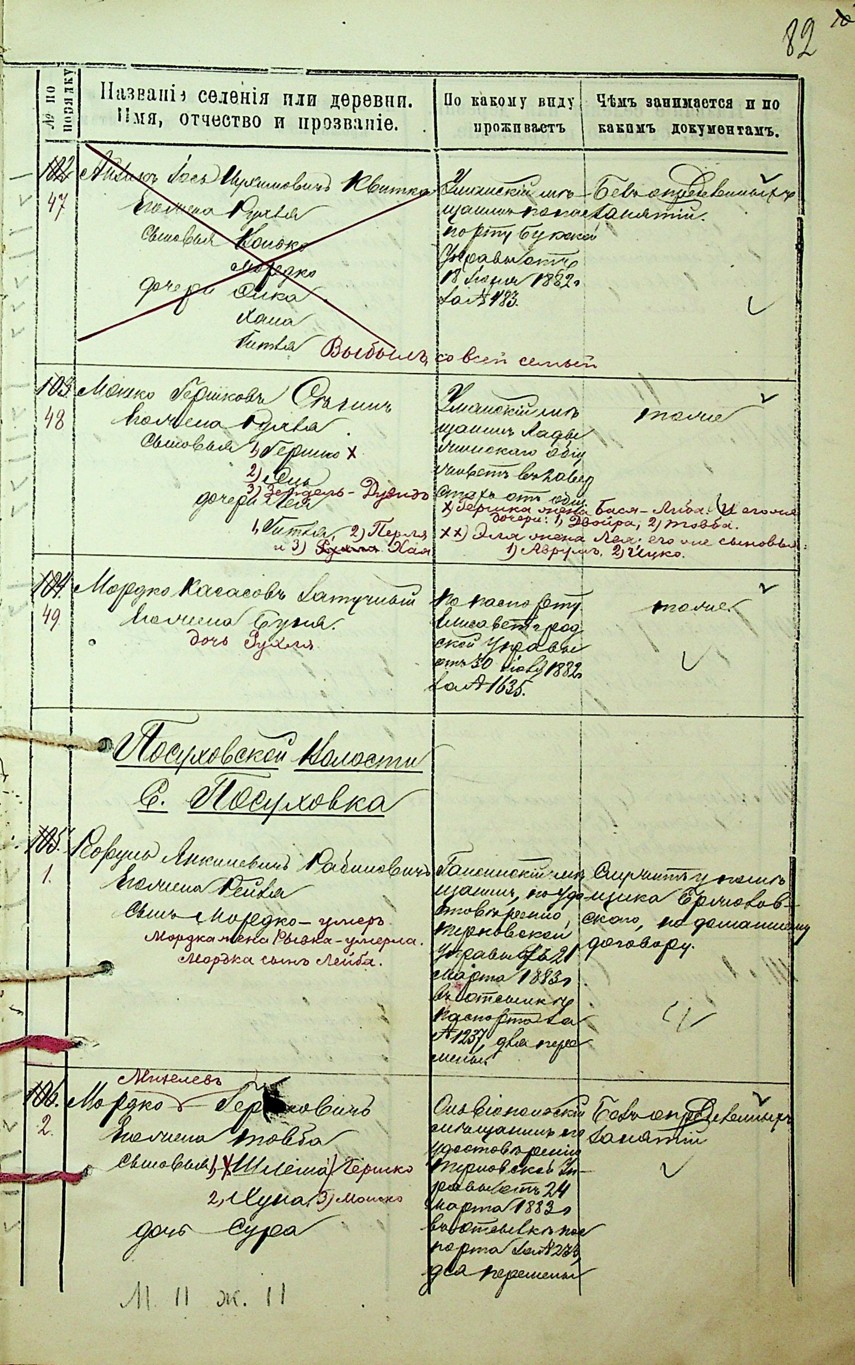 82
№ по порядку
Названіе селенія или деревни.
Имя, отчество и прозваніе.
По какому виду
проживаетъ
Чѣмъ занимается и по
какимъ документамъ.
102
47
Іось Квитко
жена Рухля
сыновья
Мордко
дочери
Хана
Гитля
Выбылъ со всей семьей
Уманскій мѣ-
щанинъ
Управы отъ
18 1882 г.
за № 183.
Безъ опредѣленныхъ
занятій.
103
48
Мошко Гершковъ
жена Рухля
сыновья 1) Гершко х
2)
3) Зейдель-Дувидъ
дочери Лея
1) Гитля, 2) Перля
и 3) Хая
Уманскій мѣ
щанинъ Лады
жинскаго общ
тоже
х) Гершка жена Бася-Либа. И его же
дочери: 1) Двойра, 2) Товба.
хх) Эля жена Лея. его же сыновья:
1) Аврумъ, 2) Ицко.
104
49
Мордко
жена Буня.
дочь Рухля.
по паспорту
Елисаветград
ской Управы
отъ 30 1882 г
за № 1635.
тоже.
Посуховской Волости
С. Посуховка
105.
1.
Янкилевичъ Рабиновичъ
жена Рейзя
сынъ Мордко - умеръ
Мордка жена Рывка - умерла.
Морька сынъ Лейба.
мѣ
щанинъ, по удо
стовѣренію
Терновской
Управы отъ 21
марта 1883 г
въ отсылкѣ
паспорта за
№ 1237, для пере
мены.
Служитъ у помѣ
щика
скаго, по домашнему
договору.
106.
2.
Михелевъ
Мордко Гершковичъ
жена Товба
сыновья 1) Шлема Гершко
2) Хуна 3) Мошко
дочь Сура
Ольвіопольскій
мѣщанинъ по
удостовѣренію
Терновской Уп-
равы отъ 24
марта 1883 г
въ отсылкѣ пас
порта за №
для перемены
Безъ опредѣленныхъ
занятій
М. 11 ж. 11